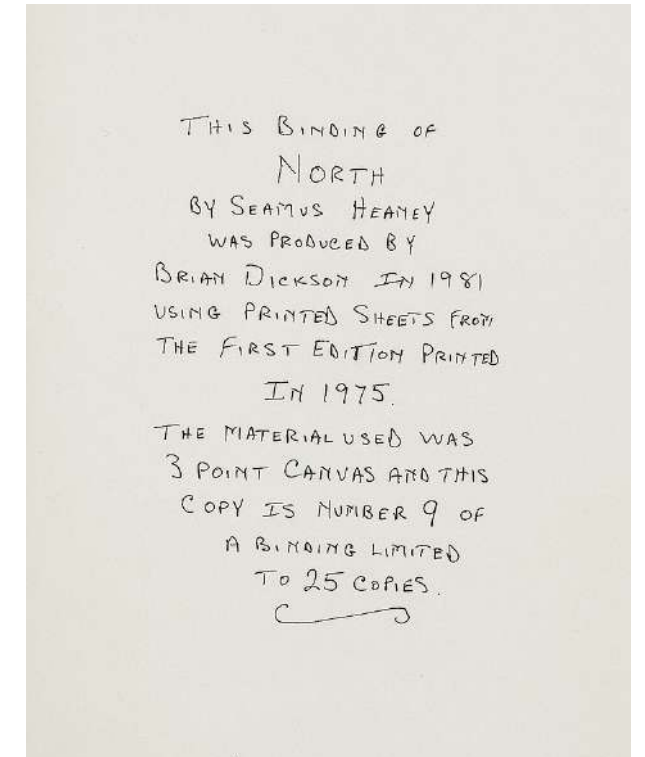 THIS BINDING OF
NORTH
BY SEAMUS HEANEY
WAS PRODUCED BY
BRIAN DICKSON IN 1981
USING PRINTED SHEETS FROM
THE FIRST EDITION PRINTED
IN 1975.
THE MATERIAL USED WAS
3 POINT CANVAS AND THIS
COPY IS NUMBER 9 OF
A BINDING LIMITED
TO 25 COPIES.